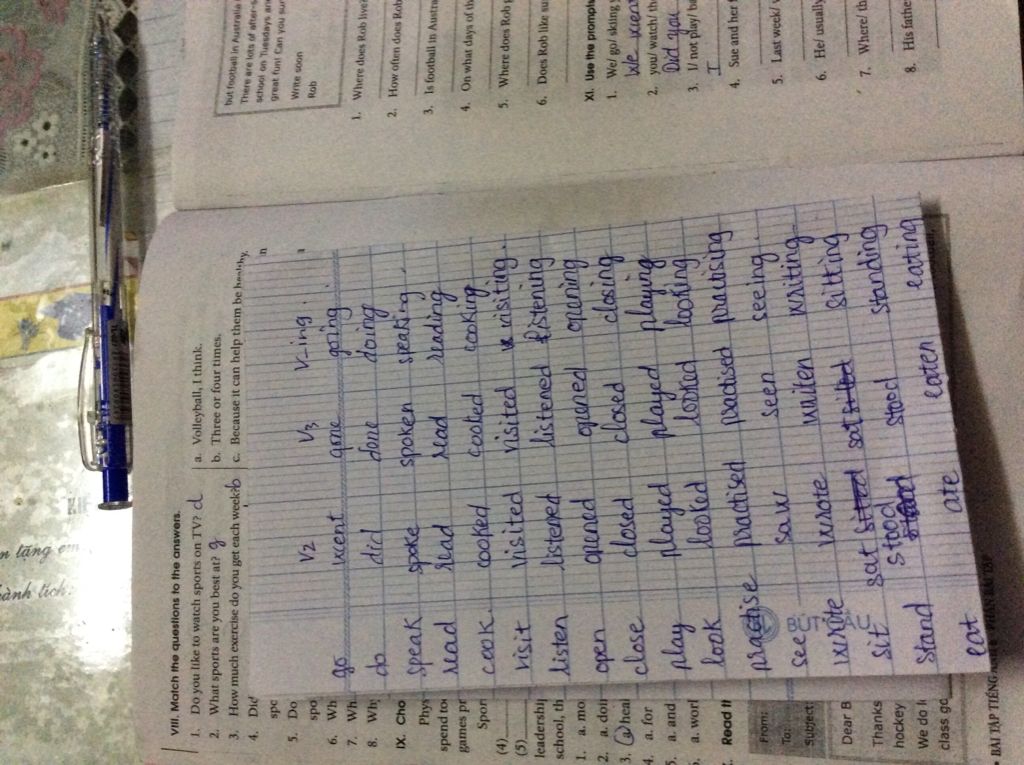 VIII. Match the questions to the answers.
1. Do you like to watch sports on TV? d a. Volleyball, I think.
2. What sports are you best at? g b. Three or four times.
3. How much exercise do you get each week? b c. Because it can help them be healthy.
4. Did
spo
5. Do
spo
6. Wh
7. Wh
8. Why
IX. Cho
Phys
spend to
games pr
Spor
(4)
(5)
leadershi
school, th
1. a. mo
2. a. doi
3. a heal
4. a. for
5. a. and
a. worl
Read t
From:
To:
Subject
Dear B
Thanks
hockey
We do l
class go
• BÀI TẬP TIẾNG ANH
V2 V3 V-ing.
go went gone going
do did done doing
speak spoke spoken speaking
read read read reading
cook cooked cooked cooking
visit visited visited visiting
listen listened listened listening
open opened opened opening
close closed closed closing
play played played playing
look looked looked looking
practise practised practised practising
see saw seen seeing
write wrote writen writing
sit sat sitted sat sitted sitting
stand stood stood standing
eat ate eaten eating
BÚT
but football in Australia
There are lots of after-s
school on Tuesdays an
great fun! Can you sur
Write soon
Rob
1. Where does Rob live
2. How often does Rob
3. Is football in Austra
4. On what days of th
5. Where does Rob p
6. Does Rob like su
XI. Use the prompt
1. We/ go/ skiing
We went
2. you/ watch/ th
Did you
3. I/ not play/ ba
I
4. Sue and her
5. Last week/
6. He/ usually
7. Where/ th
8. His fathe